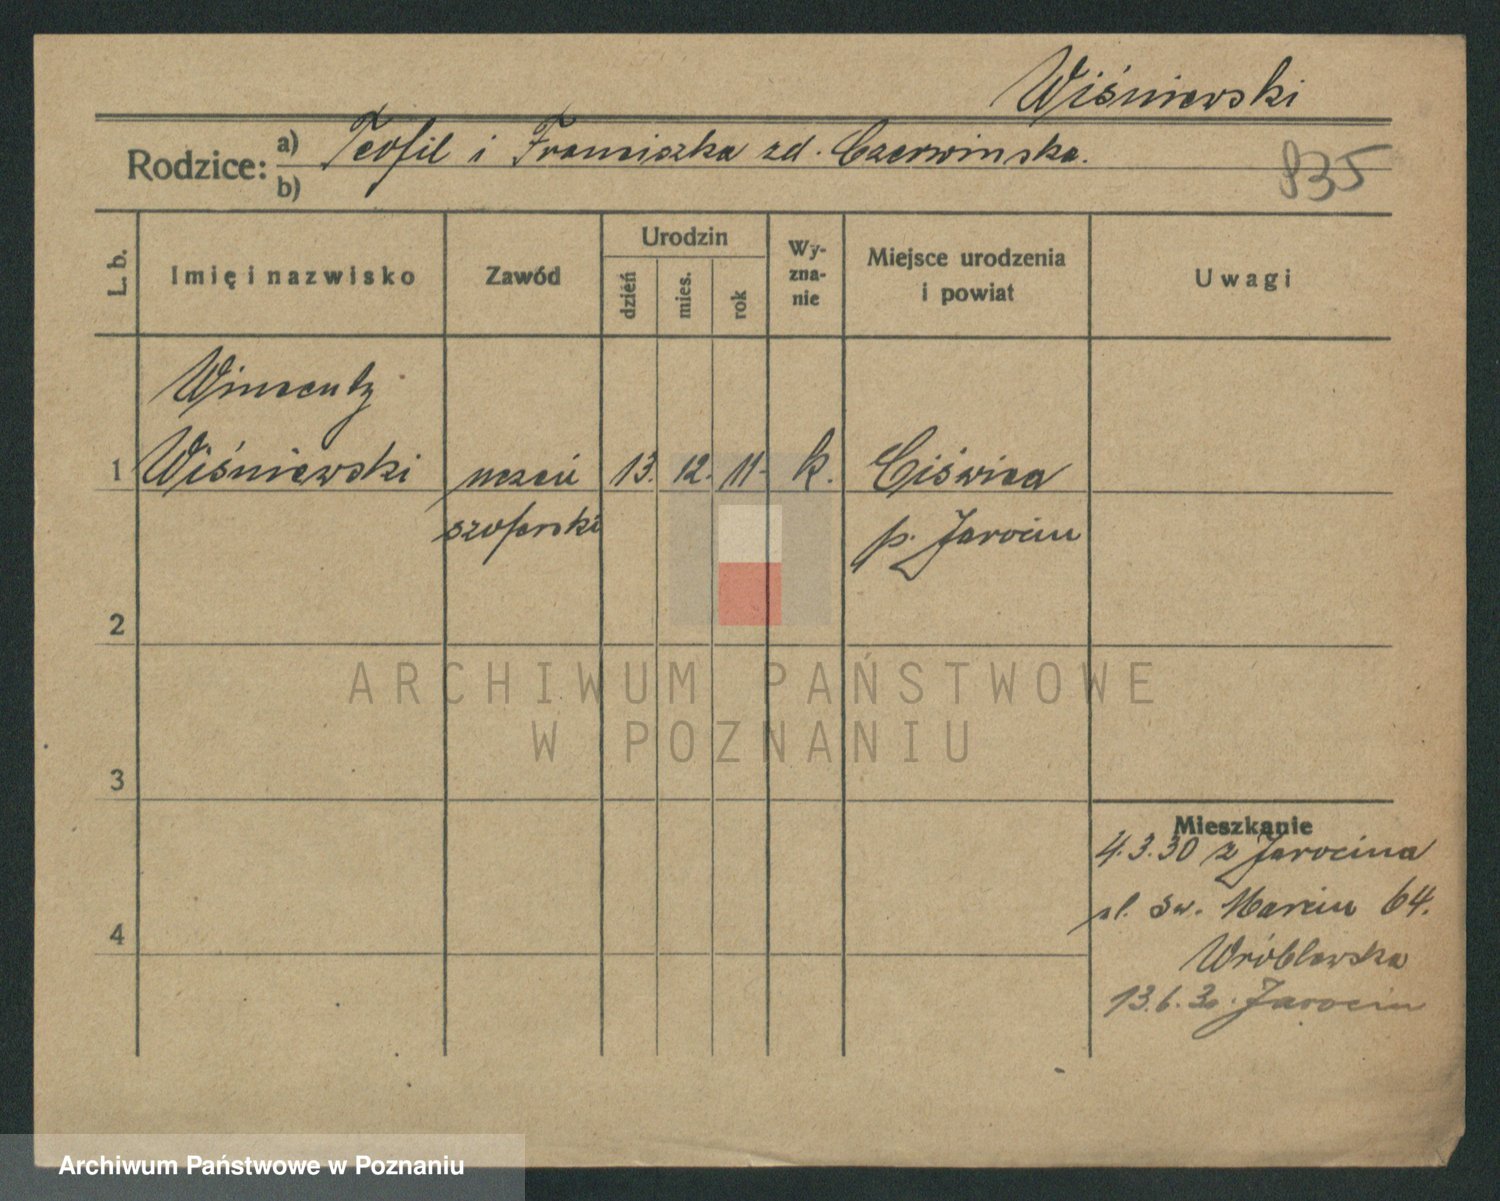 Wiśniewski
Rodzice: a) Teofil i Franciszka zd. Czerwinska.
b)
835
L. b.
Imię i nazwisko
Zawód
Urodzin
dzień
mies.
rok
Wy-
zna-
nie
Miejsce urodzenia
i powiat
Uwagi
Wincenty
1 Wiśniewski uczeń 13. 12. 11. k. Ciświca
szoferski p. Jarocin
2
3
4
ARCHIWUM PAŃSTWOWE
W POZNANIU
Mieszkanie
4.3.30 z Jarocina
ul. Św. Marcin 64.
Wróblewska
13.6.30. Jarocin
Archiwum Państwowe w Poznaniu